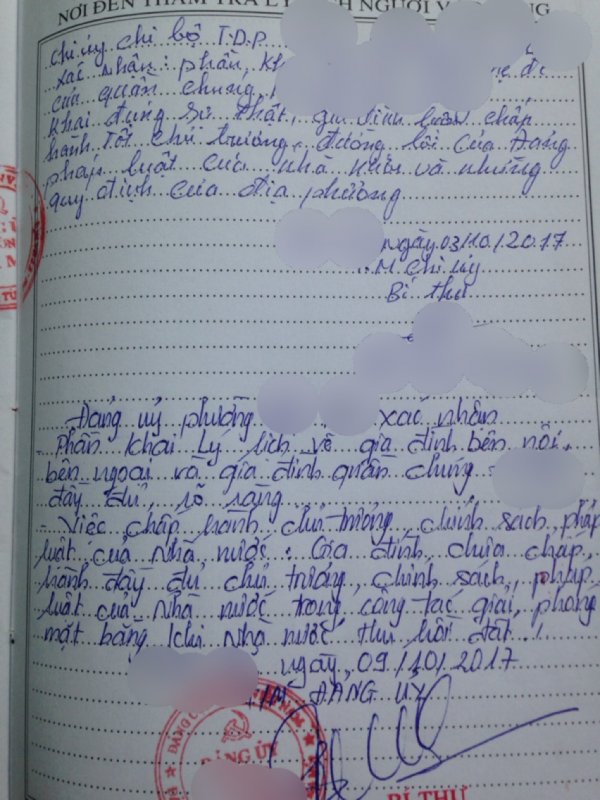 NƠI ĐẾN THẨM TRA LÝ LỊCH NGƯỜI V
Chi ủy chi bộ T.D.P
xác nhận: phần, kh
của quần chúng,
khai đúng sự thật, gia đình luôn chấp
hành tốt chủ trương, đường lối của Đảng
pháp luật của nhà nước và những
quy định của địa phương
ngày 03/10/2017
T.M. Chi ủy
Bí thư
Đảng uỷ phường xác nhận
- Phần khai lý lịch về gia đình bên nội,
bên ngoại và gia đình quần chúng
đầy đủ, rõ ràng
- Việc chấp hành chủ trương, chính sách pháp
luật của Nhà nước: Gia đình chưa chấp
hành đầy đủ chủ trương, chính sách, pháp
luật của Nhà nước trong công tác giải phóng
mặt bằng khi Nhà nước thu hồi đất./
ngày, 09/10/2017
TM ĐẢNG UỶ
ĐẢNG ỦY
BÍ THƯ